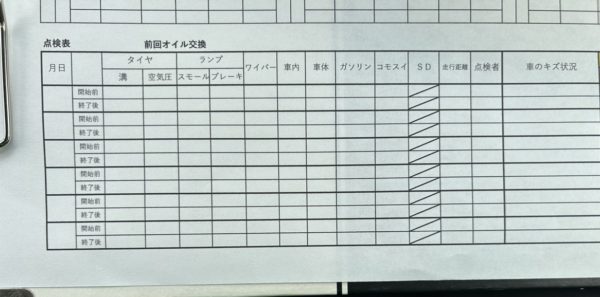 点検表 前回オイル交換
月日 タイヤ ランプ ワイパー 車内 車体 ガソリン コモスイ SD 走行距離 点検者 車のキズ状況
溝 空気圧 スモール ブレーキ
開始前
終了後
開始前
終了後
開始前
終了後
開始前
終了後
開始前
終了後
開始前
終了後